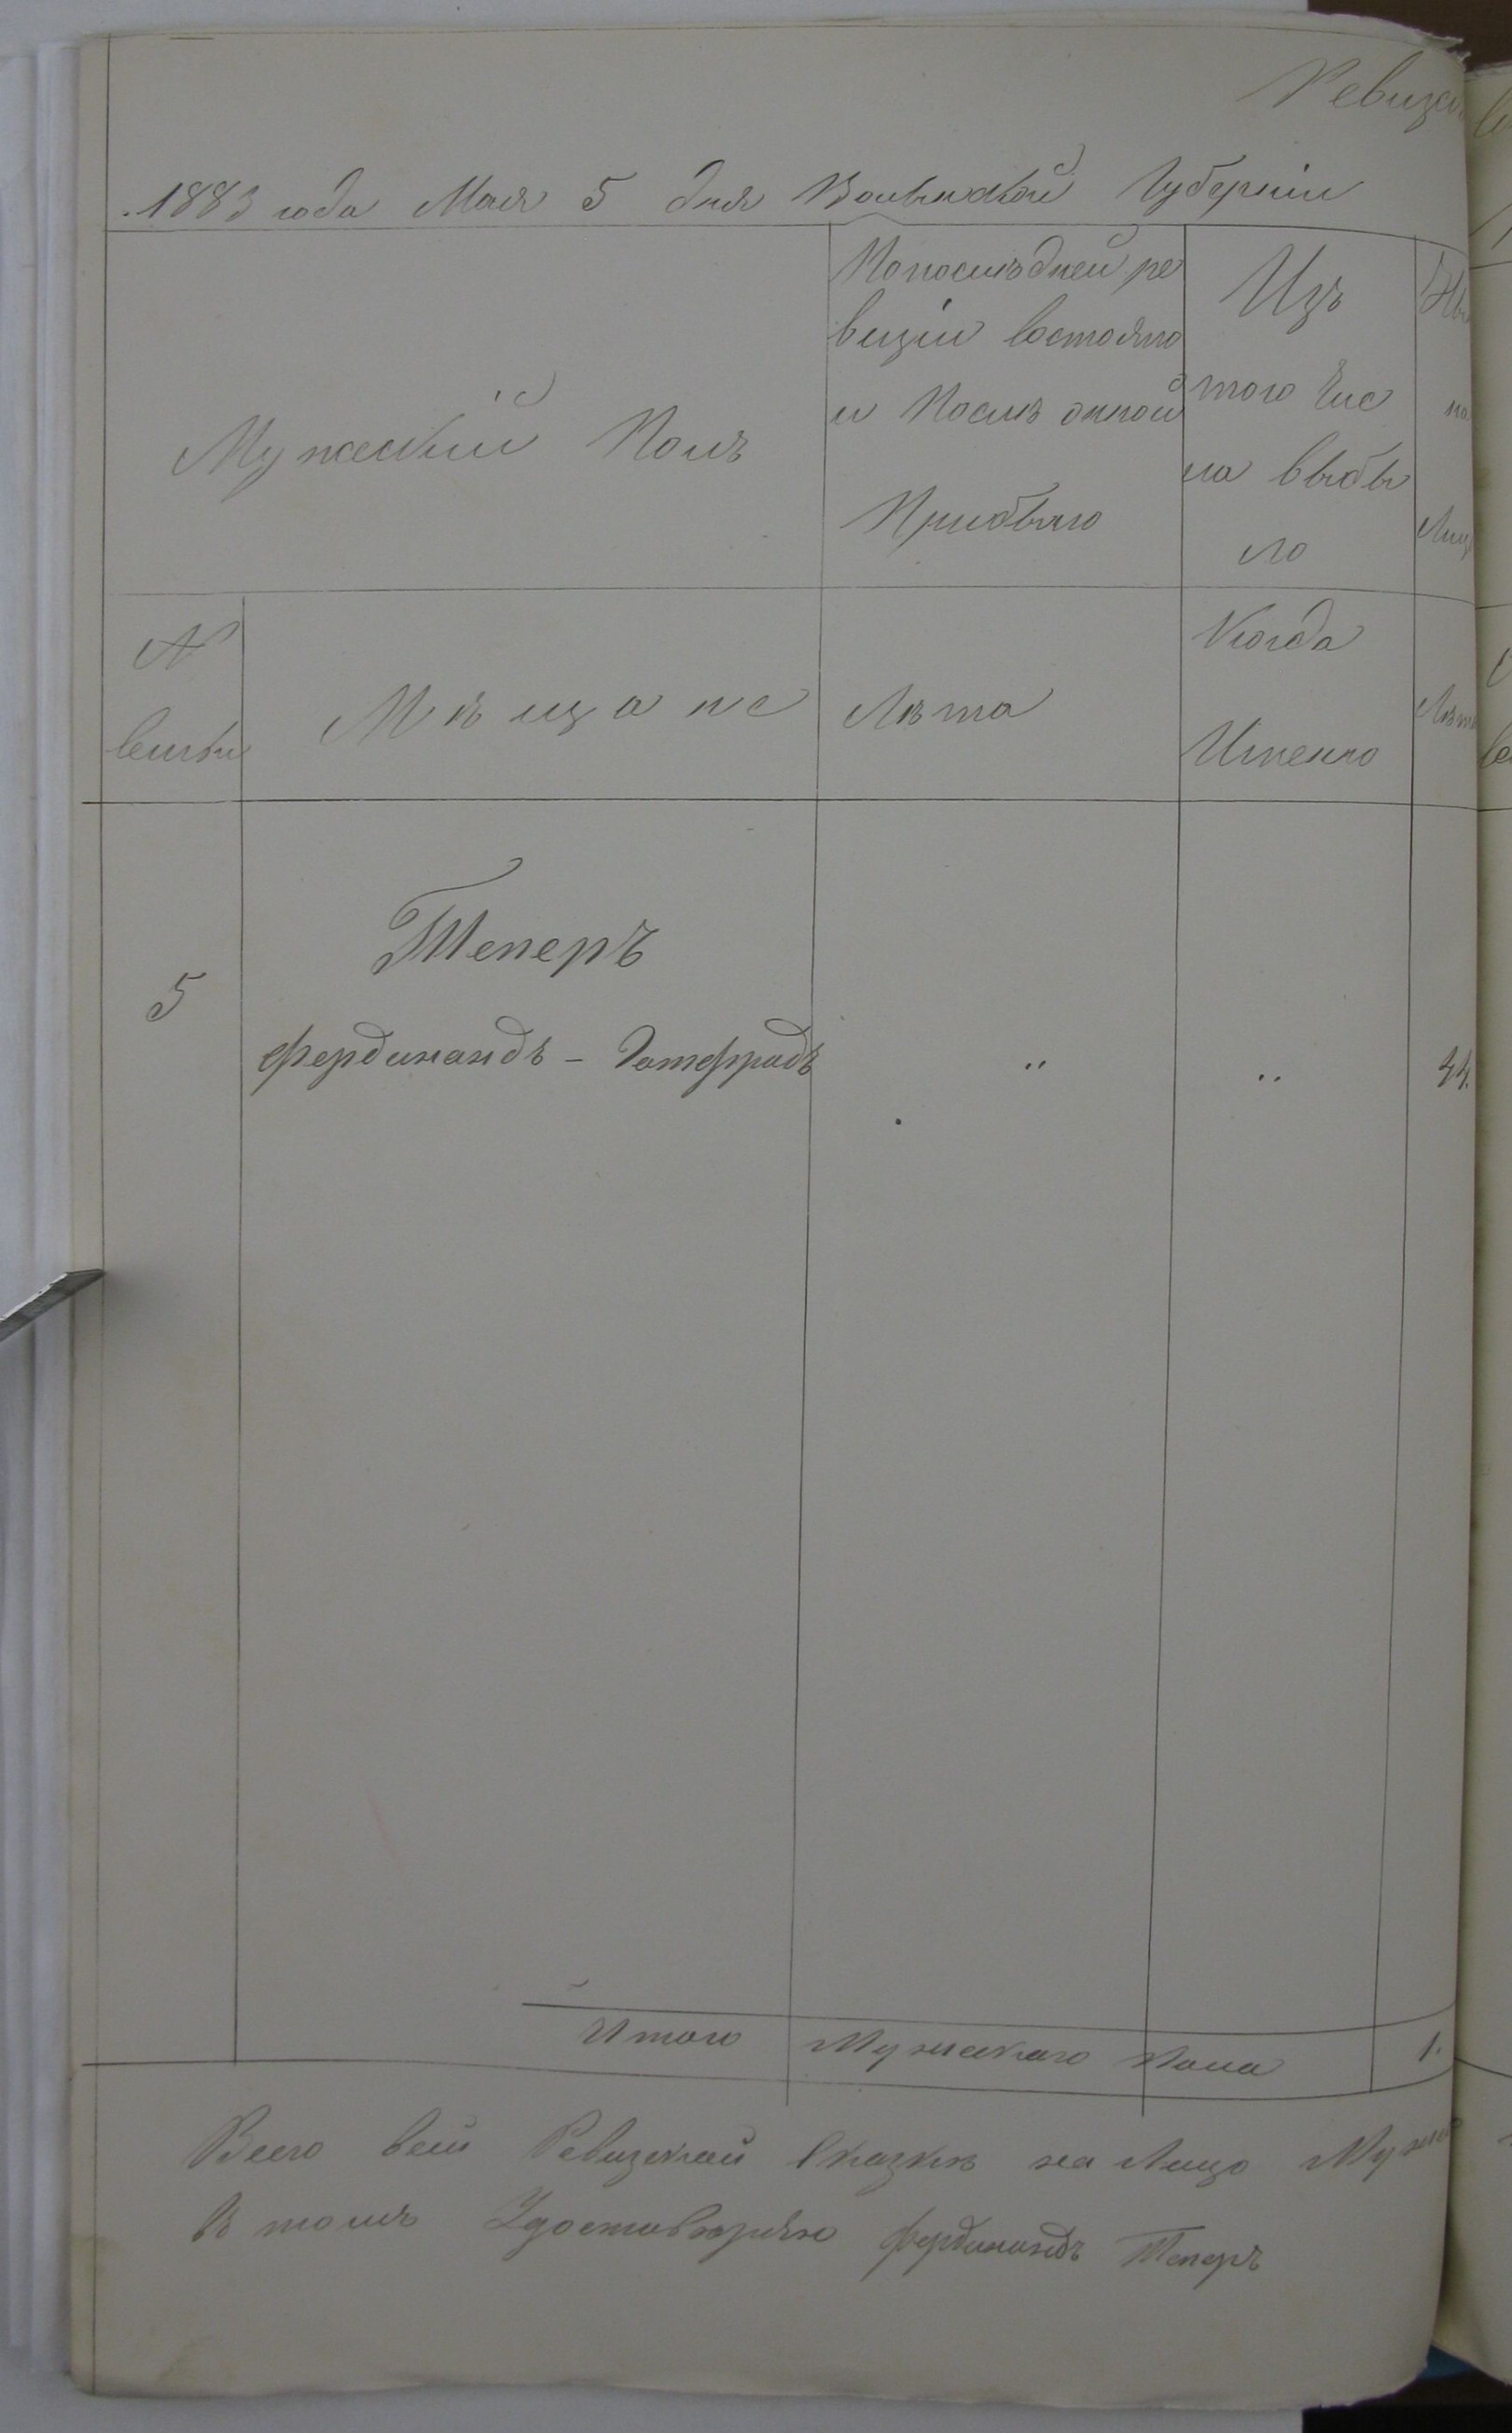 Ревизс
1883 года Мая 5 дня Волынской Губерніи
Мужескій Полъ
Попослѣдней ре
визіи состояло
и Послѣ оной
Прибыло
Изъ
того Чис
ла выбы
ло
на
Лиц
№
семьи
Мѣщане
Лѣта
Когда
Именно
Лѣта
5
Теперъ
Фердинандъ - Готфридъ
"
"
44.
Итого Мужескаго Пола 1.
Всего всей Ревизской Сказкѣ на Лицо Мужес
В томъ Удостовѣряю Фердинандъ Теперъ